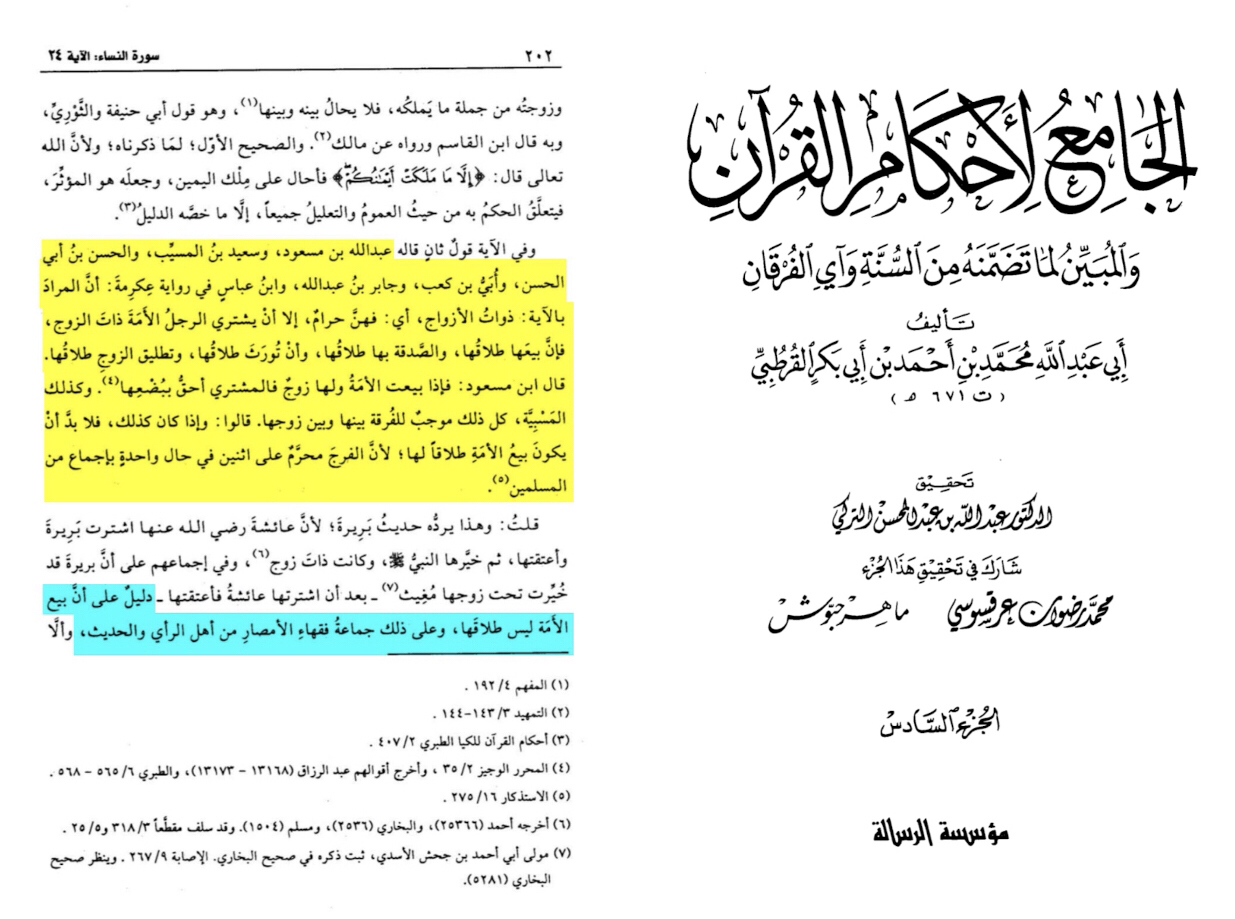 الجَامِعُ لِأَحْكَامِ القُرْآنِ
وَالمُبَيِّنُ لمَا تَضَمَّنَهُ مِنَ السُّنَّةِ وَآيِ الفُرْقَانِ
تَأليفُ
أَبِي عَبْدِ اللَّهِ مُحَمَّدِ بْنِ أَحْمَدَ بْنِ أَبِي بَكْرٍ القُرْطُبِيِّ
( ت ٦٧١ هـ )
تَحقِيق
الدكتور عَبْد اللَّه بن عَبْد المحسن التركي
شَارَكَ فِي تَحْقِيقِ هَذَا الجُزْءِ
محمَّد رضوان عرقسوسي ماهر حبّوش
الجُزْءُ السَّادسْ
مؤسسة الرسالة
٢٠٢ سورة النساء: الآية ٢٤
وزوجتُه من جملة ما يَملكُه، فلا يحالُ بينه وبينها(١)، وهو قول أبي حنيفة والثَّوْرِيِّ،
وبه قال ابن القاسم ورواه عن مالك(٢). والصحيح الأوّل؛ لمَا ذكرناه؛ ولأنَّ الله
تعالى قال: ﴿إِلَّا مَا مَلَكَتْ أَيْمَٰنُكُمْۖ﴾ فأحال على مِلْك اليمين، وجعلَه هو المؤثِّرَ،
فيتعلَّقُ الحكمُ به من حيثُ العمومُ والتعليلُ جميعاً، إلَّا ما خصَّه الدليلُ(٣).
وفي الآية قولٌ ثانٍ قاله عبدالله بن مسعود، وسعيد بنُ المسيِّب، والحسن بنُ أبي
الحسن، وأُبَيُّ بن كعب، وجابر بنُ عبدالله، وابنُ عباسٍ في رواية عِكرِمةَ: أنَّ المرادَ
بالآية: ذواتُ الأزواج، أي: فهنَّ حرامٌ، إلا أنْ يشتري الرجلُ الأَمَةَ ذاتَ الزوج،
فإنَّ بيعَها طلاقُها، والصَّدقة بها طلاقُها، وأنْ تُورَثَ طلاقُها، وتطليق الزوجِ طلاقُها.
قال ابن مسعود: فإذا بيعت الأمَةُ ولها زوجٌ فالمشتري أحقُّ ببُضْعِها(٤). وكذلك
المَسْبِيَّة، كل ذلك موجبٌ للفُرقة بينها وبين زوجها. قالوا: وإذا كان كذلك، فلا بدَّ أنْ
يكونَ بيعُ الأمَةِ طلاقاً لها؛ لأنَّ الفرجَ محرَّمٌ على اثنين في حال واحدةٍ بإجماع من
المسلمين(٥).
قلتُ: وهذا يردُّه حديثُ بَرِيرةَ؛ لأنَّ عائشةَ رضي الله عنها اشترت بَرِيرةَ
وأعتقتها، ثم خيَّرها النبيُّ ﷺ، وكانت ذاتَ زوج(٦)، وفي إجماعهم على أنَّ بريرةَ قد
خُيِّرت تحت زوجها مُغِيث(٧) ـ بعد أن اشترتها عائشةُ فأعتقتها ـ دليلٌ على أنَّ بيع
الأَمَة ليس طلاقَها، وعلى ذلك جماعةُ فقهاءِ الأمصارِ من أهل الرأي والحديث، وألَّا
(١) المفهم ٤/ ١٩٢ .
(٢) التمهيد ٣/ ١٤٣-١٤٤ .
(٣) أحكام القرآن للكيا الطبري ٢/ ٤٠٧ .
(٤) المحرر الوجيز ٢/ ٣٥ ، وأخرج أقوالهم عبد الرزاق (١٣١٦٨ - ١٣١٧٣)، والطبري ٦/ ٥٦٥ - ٥٦٨ .
(٥) الاستذكار ١٦/ ٢٧٥ .
(٦) أخرجه أحمد (٢٥٣٦٦)، والبخاري (٢٥٣٦)، ومسلم (١٥٠٤). وقد سلف مقطَّعاً ٣/ ٣١٨ و٥/ ٢٥ .
(٧) مولى أبي أحمد بن جحش الأسدي، ثبت ذكره في صحيح البخاري. الإصابة ٩/ ٢٦٧ . وينظر صحيح
البخاري (٥٢٨١).